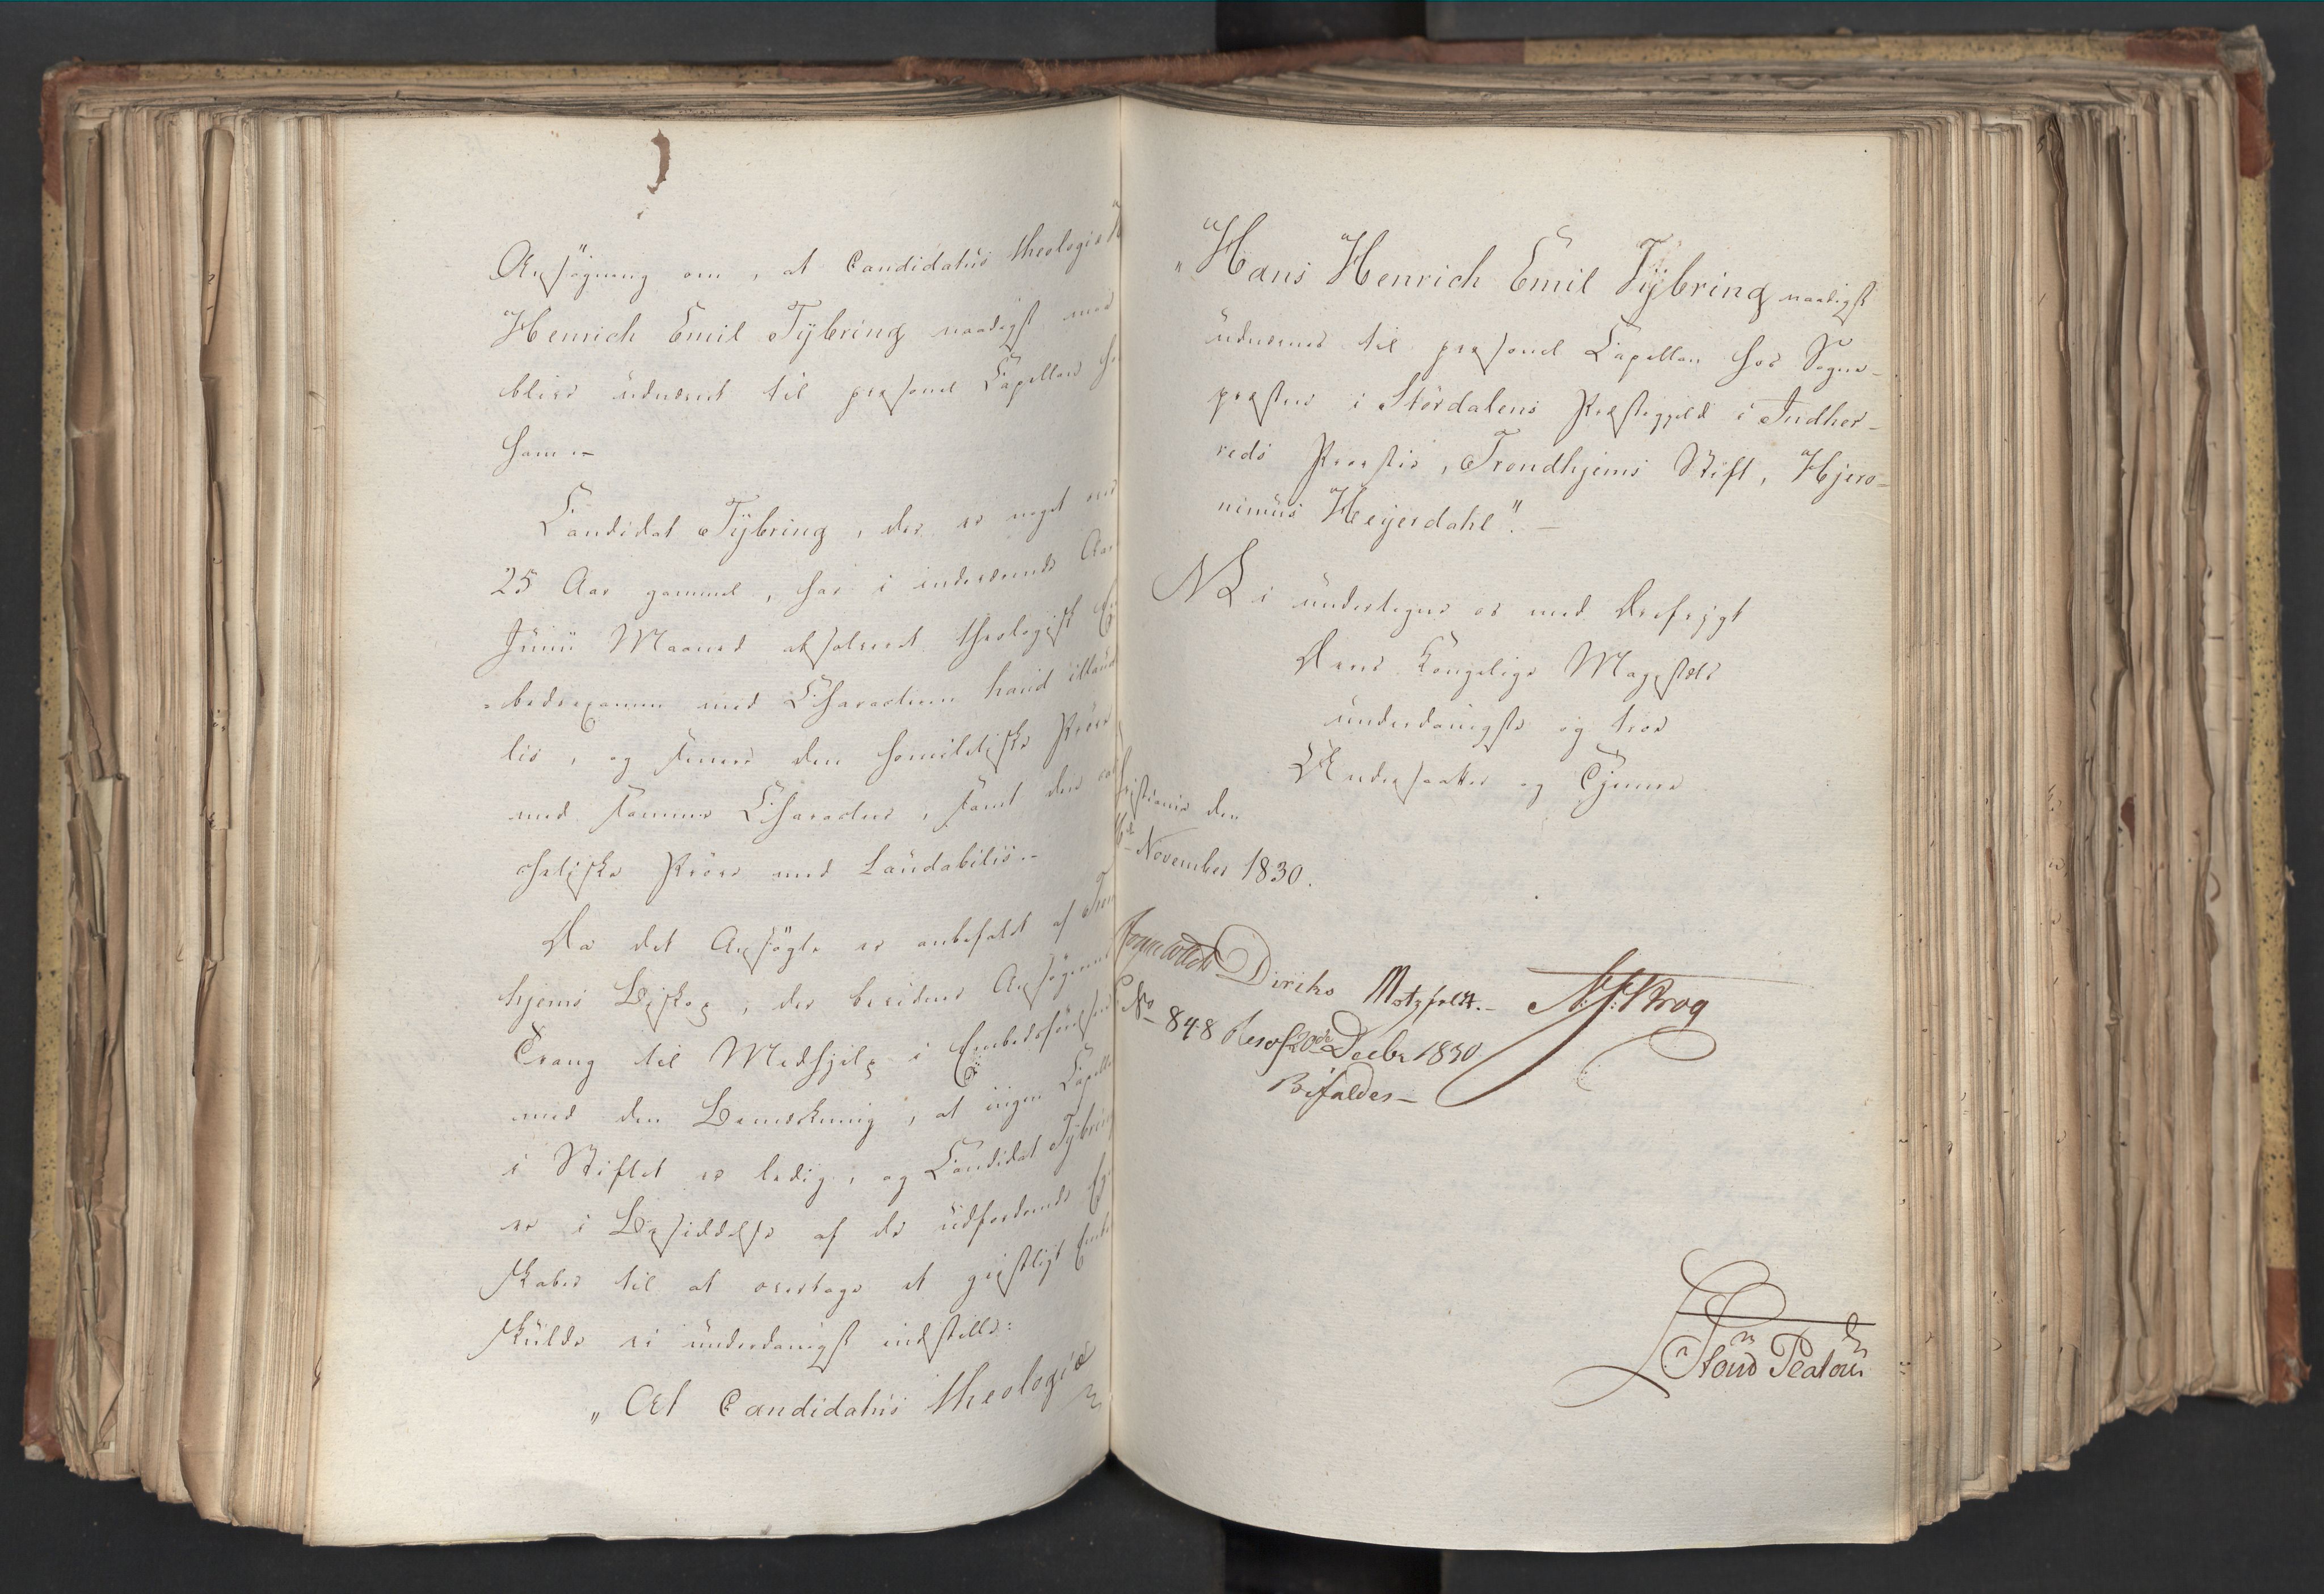 Ansøgning om, at Candidatus theologiæ
Henrich Emil Tybring naadigst maa
blive udnævnt til personel Capellan
ham.-
Candidat Tybring, der er noget over
25 Aar gammel, har i indeværende Aars
Junii Maaned absolveret theologisk
-bedsexamen med Characteren haud illauda
lis, og senere den homiletiske Prøve
med samme Character, samt den cate
chetiske Prøve med Laudabilis.-
Da det Ansøgte er anbefalet af Tron
hjems Biskop, der bevidner Ansøgerens
Trang til Medhjelp i Embedsførelsen
med den Bemærkning, at ingen Capellan
i Stiftet er ledig, og Candidat Tybring
er i Besiddelse af de udfordrende Egen
skaber til at overtage et geistligt Embe
skulde vi underdanigst indstille:
„At Candidatus theologiæ
„Hans Henrich Emil Tybring naadigst
udnævnes til personel Capellan hos Sogne-
præsten i Stördalens Præstegjeld i Indher-
reds Provstie, Trondhjems Stift, Hjero-
nimus Heyerdahl".-
Vi undertegne os med Ærefrygt
Deres Kongelige Majestæts
underdanigste og troe
Undersaatter og Tjenere
Christiania den
November 1830.
Diriks Motzfeldt.- Krog
No 848 Resol. 20de Decbr 1830.
Bifaldes-
Stoud Platou